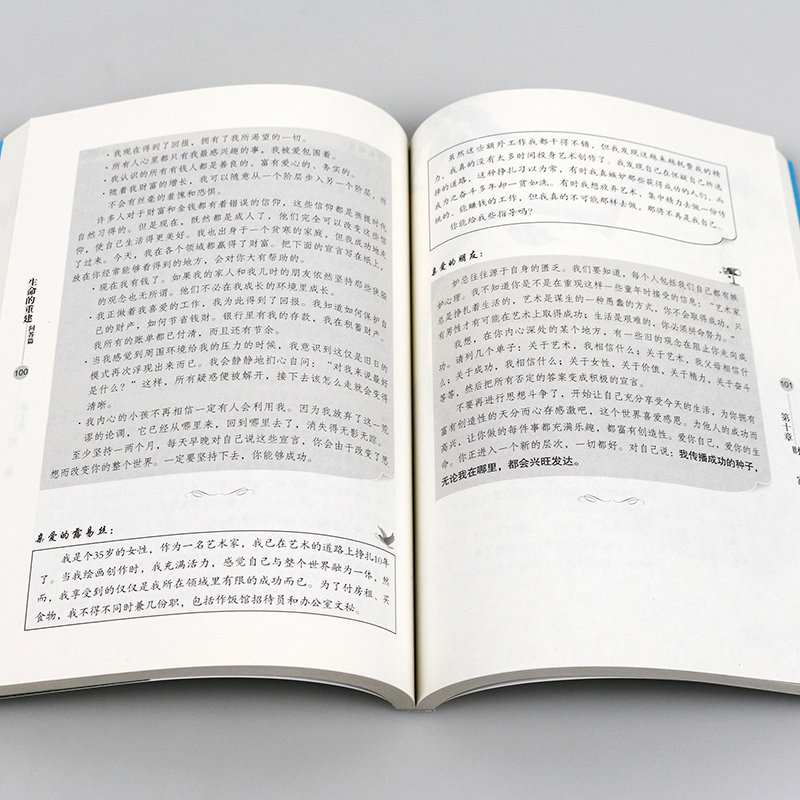 ·我现在得到了回报，拥有了我所渴望的一切。
·所有人心里都只有我最感兴趣的事，我被爱包围着。
·我认识的所有有钱人都是善良的、富有爱心的、务实的。
·随着我财富的增长，我可以随意从一个阶层步入另一个阶层，而
不会有丝毫的羞愧和恐惧。
许多人对于财富和金钱都有着错误的信仰，这些信仰都是孩提时代
自然习得的。但是现在，既然都是成人了，他们完全可以改变这些信
仰，使自己生活得更美好。我也出身于一个贫寒的家庭，但我成功地走
了过来。今天，我在各个领域都赢得了财富。把下面的宣言写在纸上，
放在你经常能够看得到的地方，会对你大有帮助的。
·现在我有钱了。如果我的家人和我儿时的朋友依然坚持那些狭隘
的观念也无所谓。他们不必在我成长的环境里成长。
·我正做着我喜爱的工作，我为此得到了回报。我知道如何保护自
己的财产，如何节省钱财。银行里有我的存款，我在积蓄财产。
我所有的账单都已付清，而且还有节余。
·当我感觉到周围环境给我的压力的时候，我意识到这仅是旧日的
模式再次浮现出来而已。我会静静地扪心自问：“对我来说最好
是什么？”这样，所有疑惑便被解开，接下去该怎么走就会变得
清晰。
·我内心的小孩不再相信一定有人会利用我。因为我放弃了这一荒
谬的论调，它已经从哪里来，回到哪里去了，消失得无影无踪。
至少坚持一两个月，每天早晚对自己说这些宣言，你会由于改变了思
想而改变你的整个世界。一定要坚持下去，你能够成功。
亲爱的露易丝：
我是个35岁的女性，作为一名艺术家，我已在艺术的道路上挣扎10年
了。当我绘画创作时，我充满活力，感觉自己与整个世界融为一体，然
而，我享受到的仅仅是我所在领域里有限的成功而已。为了付房租、买
食物，我不得不同时兼几份职，包括作饭馆招待员和办公室文秘。
生命的重建 问答篇
100
虽然这些额外工作我都干得不错，但我发现这越来越耗费我的精
力，我真的没有太多时间投身艺术创作了。我发现自己在怀疑自己所选
择的道路，这种挣扎习以为常，有时我真嫉妒那些获得成功的人们，而
我为之奋斗多年却一贫如洗。有时我想放弃艺术，集中精力去做一份传
统的、能赚钱的工作，但我真的不可能那样去做，那将不再是我自己。
你能给我些指导吗？
亲爱的朋友：
妒忌往往源于自身的匮乏。我们要知道，每个人包括我们自己都有嫉
妒心理。我不知道你是不是在重现这样一些童年时接受的信息：“艺术家
总是挣扎着生活的，艺术是谋生的一种愚蠢的方式，你不会取得成功，只
有男性才有可能在艺术上取得成功；生活是艰难的，你必须拼命努力。”
我想，在你内心深处的某个地方，有一些旧的观念在阻止你走向成
功。请列几个单子：关于艺术，我相信什么；关于艺术，我父母相信什
么；关于成功，我相信什么；关于女性，关于价值，关于精力，关于奋斗
等等，然后把所有否定的答案变成积极的宣言。
不要再进行思想斗争了，开始让自己充分享受今天的生活，为你拥有
富有创造性的天分而心存感激吧，这个世界喜爱感恩。为他人的成功而
高兴，让你做的每件事都充满乐趣，都富有创造性。爱你自己，爱你的生
命。你正进入一个新的层次，一切都好。对自己说：我传播成功的种子，
无论我在哪里，都会兴旺发达。
101
第十章 财